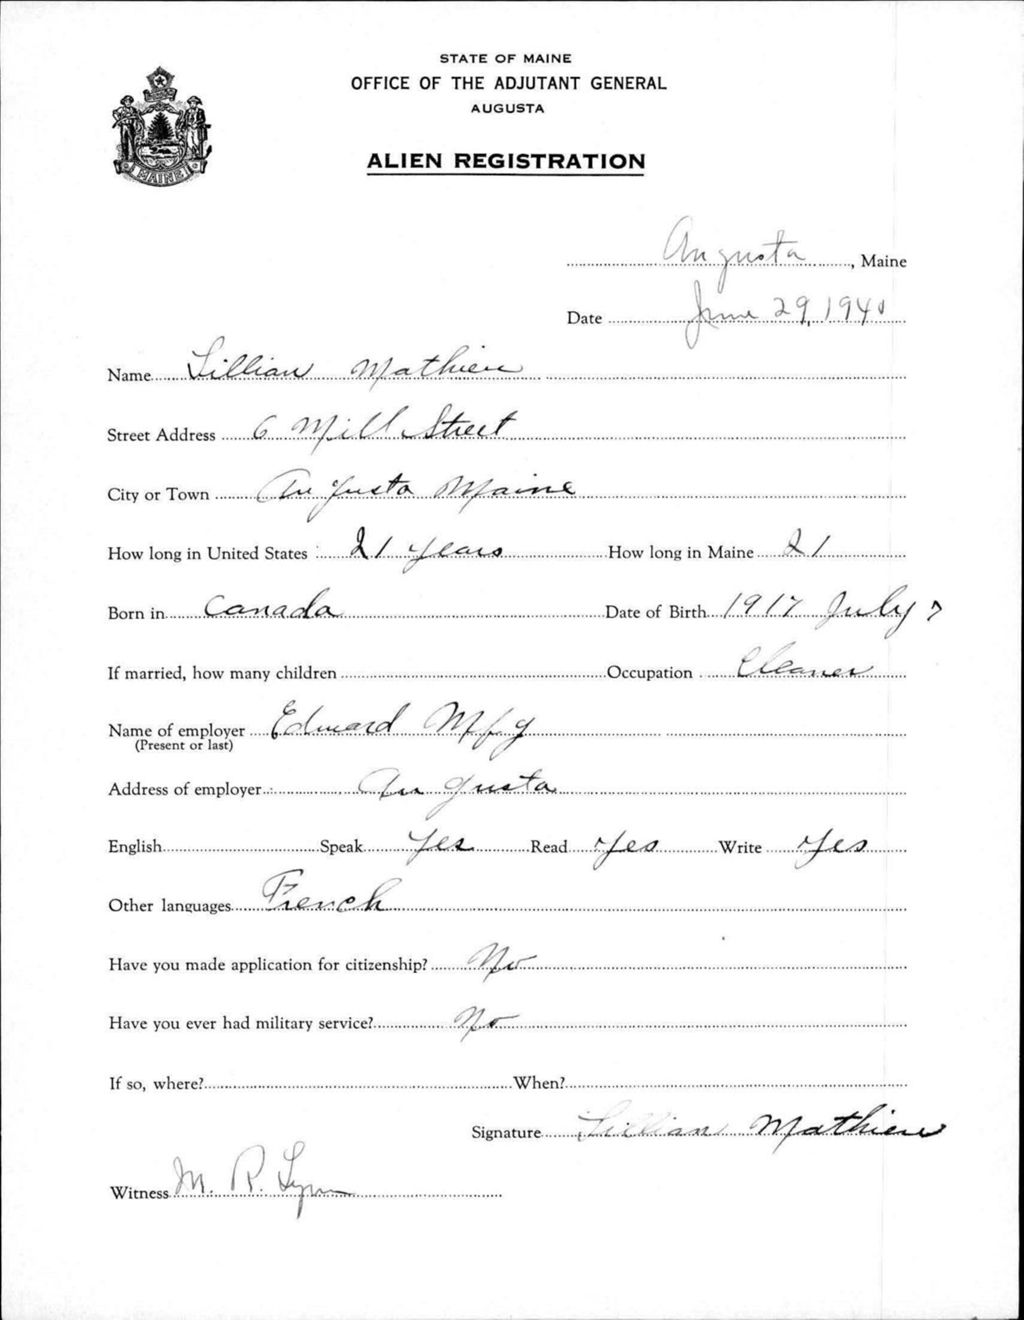 STATE OF MAINE
OFFICE OF THE ADJUTANT GENERAL
AUGUSTA
MAINE
ALIEN REGISTRATION
Augusta, Maine
Date June 29, 1940
Name Lillian Mathieu
Street Address 6 Mill Street
City or Town Augusta Maine
How long in United States 21 years How long in Maine 21
Born in Canada Date of Birth 1917 July 7
If married, how many children Occupation Cleaner
Name of employer Edward Mfg
(Present or last)
Address of employer Augusta
English Speak Yes Read Yes Write Yes
Other languages French
Have you made application for citizenship? No
Have you ever had military service? No
If so, where? When?
Signature Lillian Mathieu
Witness M. R. Lynn